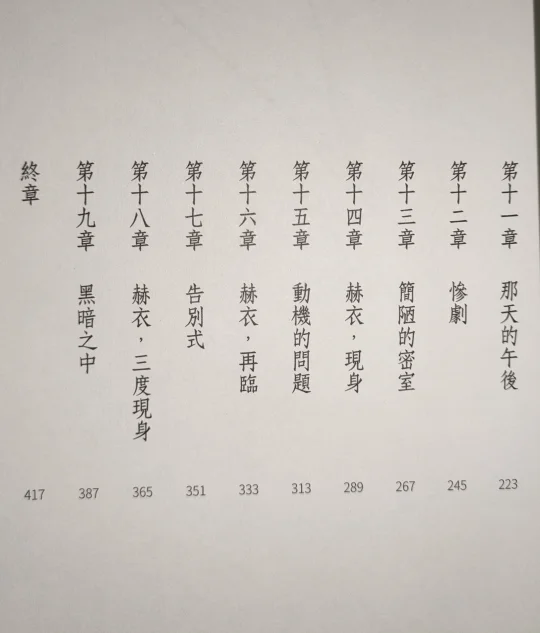 第十一章 那天的午後 223
第十二章 慘劇 245
第十三章 簡陋的密室 267
第十四章 赫衣，現身 289
第十五章 動機的問題 313
第十六章 赫衣，再臨 333
第十七章 告別式 351
第十八章 赫衣，三度現身 365
第十九章 黑暗之中 387
終章 417